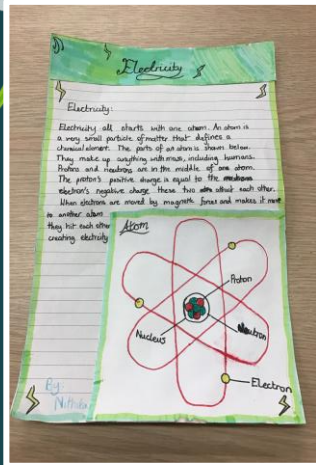 Electricity
Electricity:
Electricity all starts with one atom. An atom is
a very small particle of matter that defines a
chemical element. The parts of an atom is shown below.
They make up anything with mass, including humans.
Protons and neutrons are in the middle of one atom.
The proton's positive charge is equal to the
electron's negative charge these two attract each other.
When electrons are moved by magnetic force and makes it move
to another atom
they hit each other
creating electricity
Atom
Proton
Nucleus
Neutron
Electron
By: